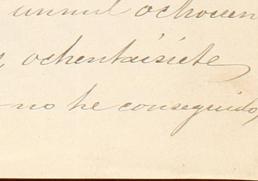 unmil ochocien
ochentaisiete
no he conseguido,